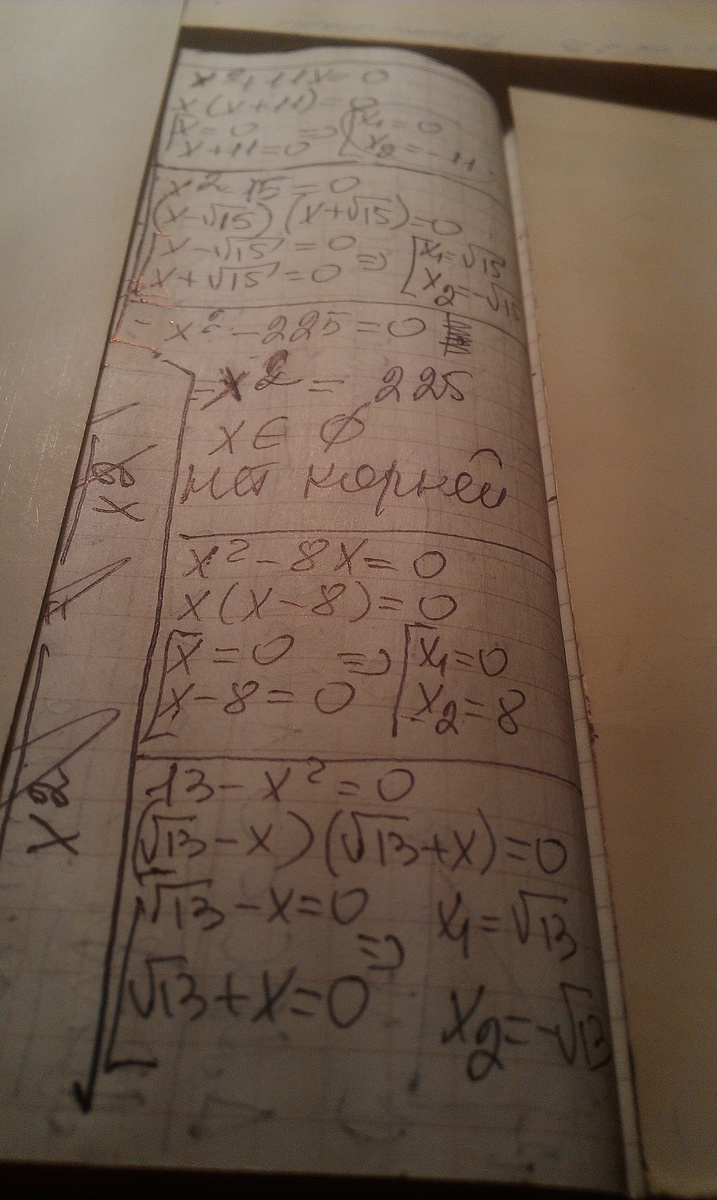 x²+11x=0
x(x+11)=0
[x=0 => [x₁=0
x+11=0 x₂=-11
x²-15=0
(x-√15)(x+√15)=0
[x-√15=0 => [x₁=√15
x+√15=0 x₂=-√15
-x²-225=0
-x²=225
x∈Ø
нет корней
x²-8x=0
x(x-8)=0
[x=0 => [x₁=0
x-8=0 x₂=8
13-x²=0
(√13-x)(√13+x)=0
[√13-x=0 => x₁=√13
√13+x=0 x₂=-√13